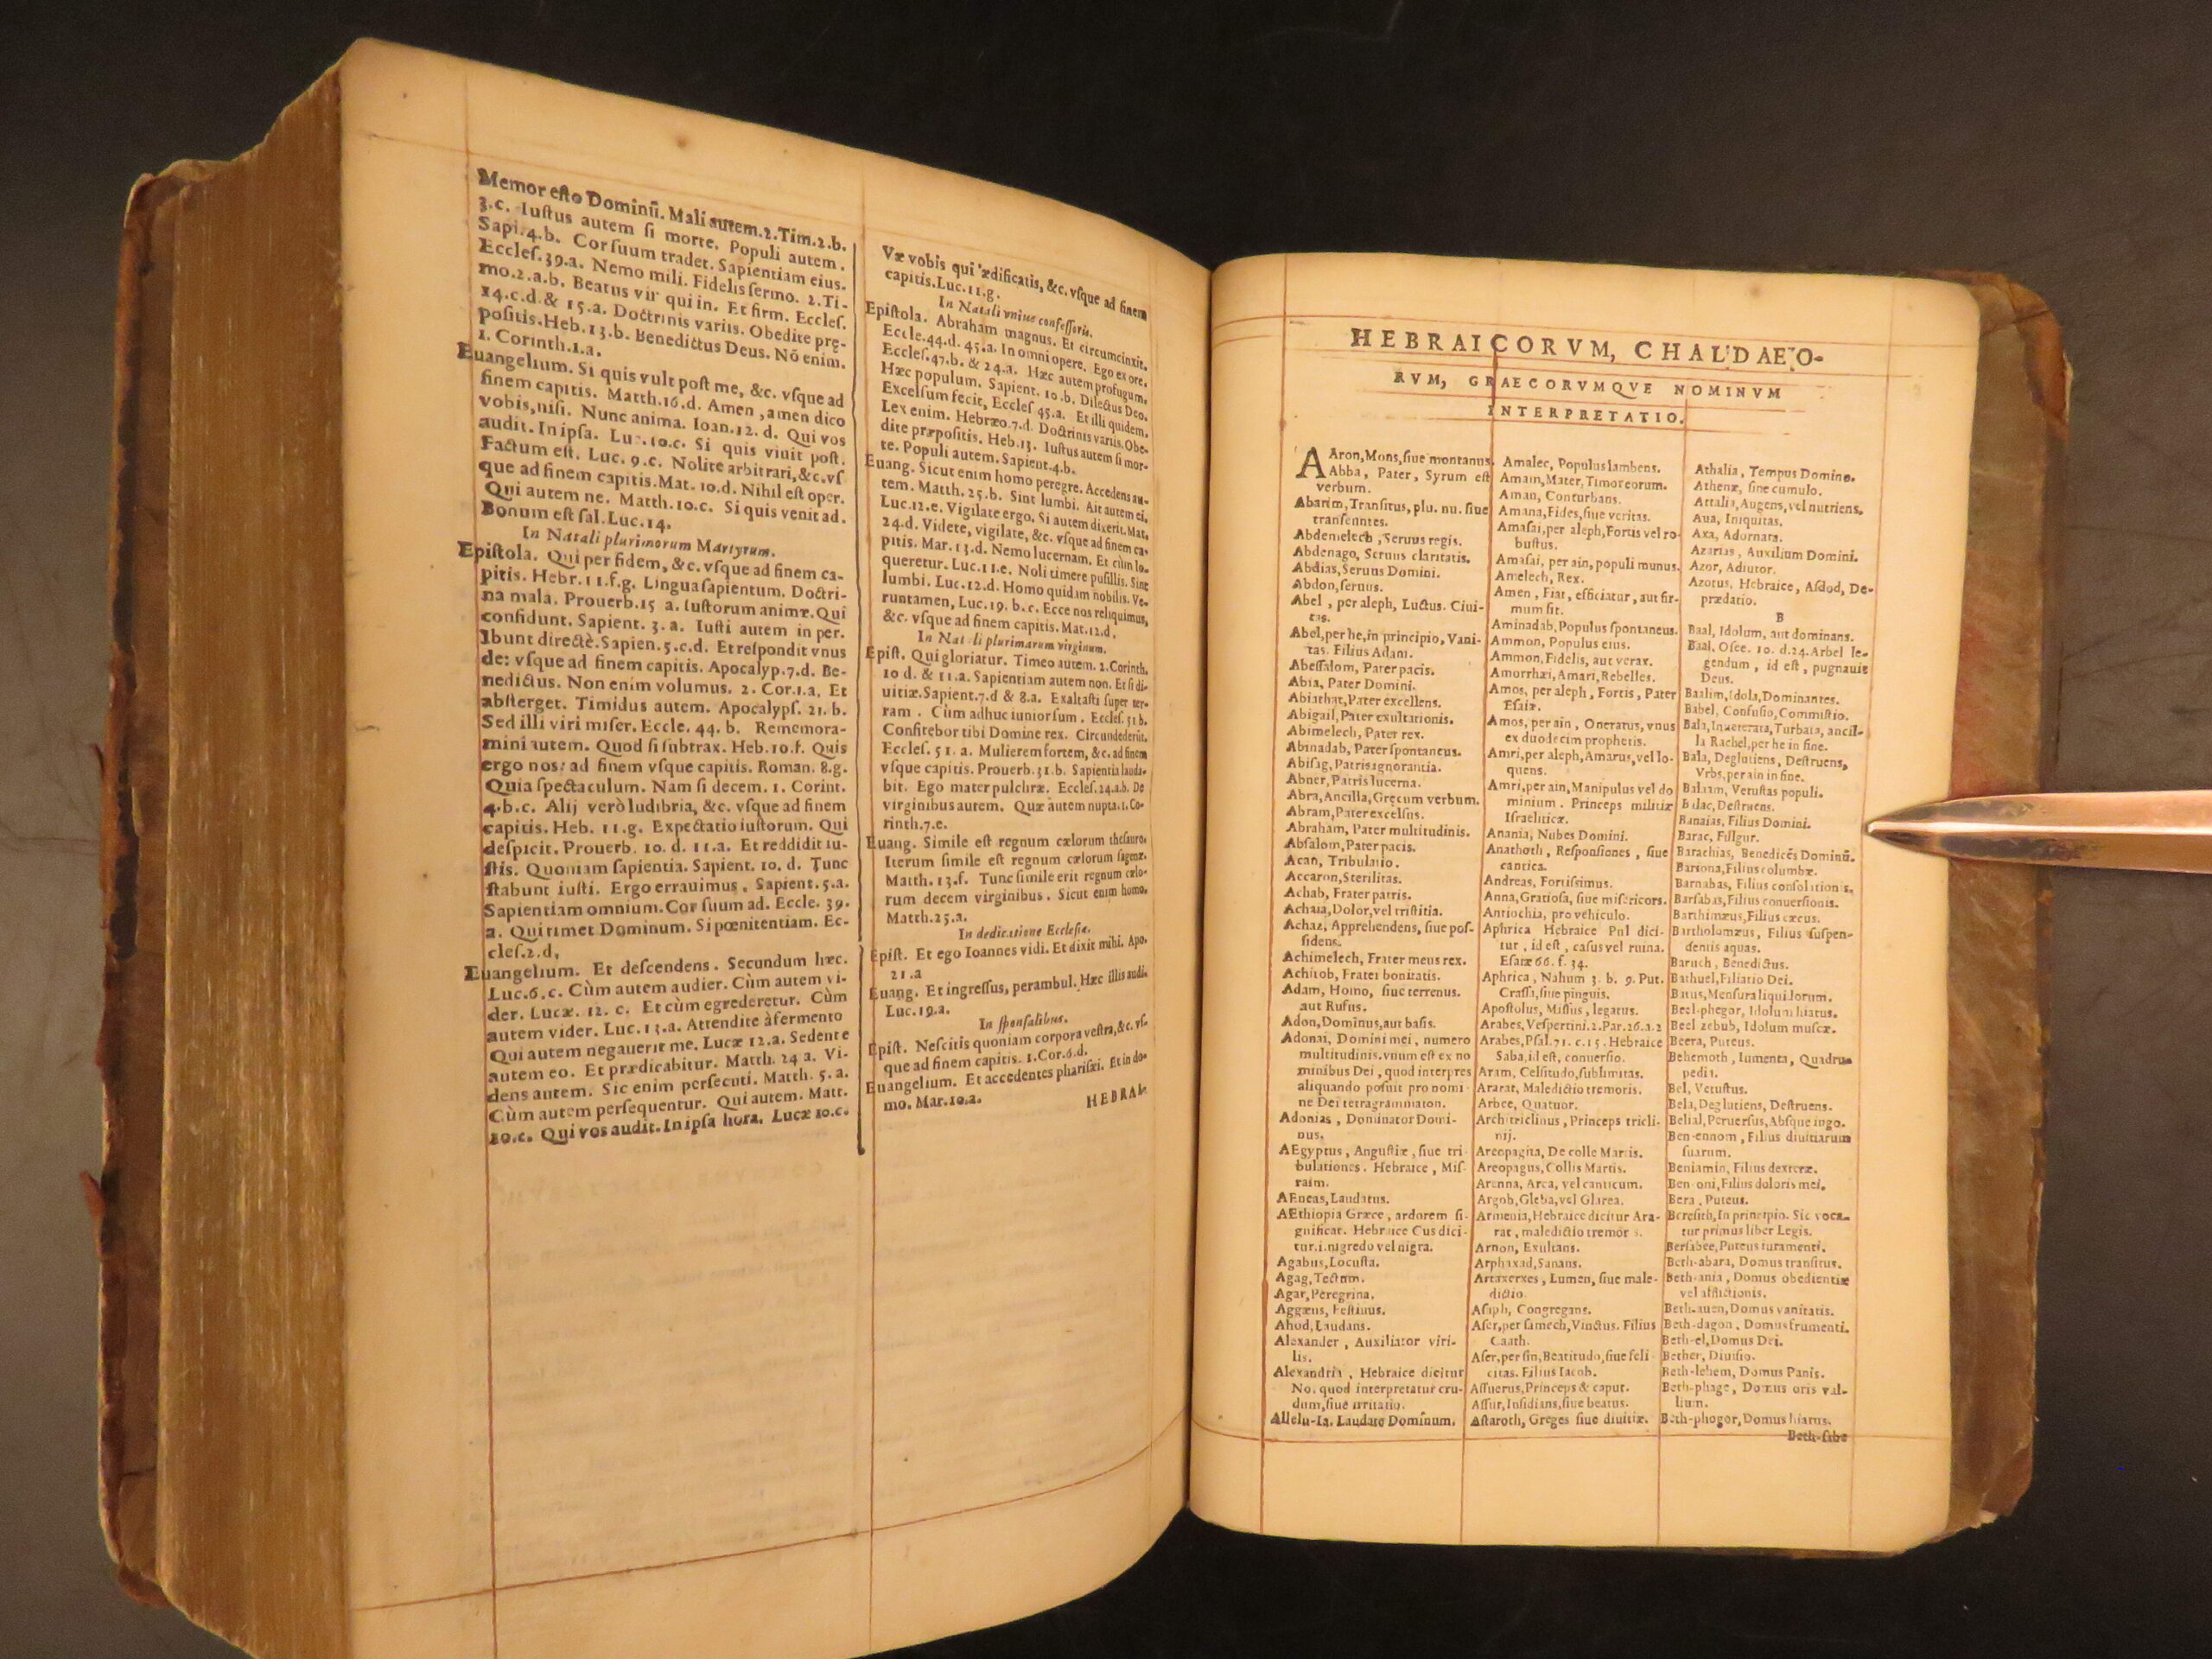 Memor eſto Dominū. Mali autem. 2. Tim. 2. b.
3. c. Iuſtus autem ſi morte. Populi autem.
Sapi. 4. b. Cor ſuum tradet. Sapientiam eius.
Eccleſ. 39. a. Nemo mili. Fidelis ſermo. 2. Ti-
mo. 2. a. b. Beatus vir qui in. Et firm. Eccleſ.
14. c. d. & 15. a. Doctrinis variis. Obedite prę-
poſitis. Heb. 13. b. Benedictus Deus. Nō enim.
1. Corinth. 1. a.
Euangelium. Si quis vult poſt me, &c. vſque ad
finem capitis. Matth. 16. d. Amen, amen dico
vobis, niſi. Nunc anima. Ioan. 12. d. Qui vos
audit. In ipſa. Luc. 10. c. Si quis viuit poſt.
Factum eſt. Luc. 9. c. Nolite arbitrari, &c. vſ
que ad finem capitis. Mat. 10. d. Nihil eſt oper.
Qui autem ne. Matth. 10. c. Si quis venit ad.
Bonum eſt ſal. Luc. 14.
In Natali plurimorum Martyrum.
Epiſtola. Qui per fidem, &c. vſque ad finem ca-
pitis. Hebr. 11. f. g. Lingua ſapientum. Doctri-
na mala. Prouerb. 15 a. Iuſtorum animæ. Qui
confidunt. Sapient. 3. a. Iuſti autem in per.
Ibunt directè. Sapien. 5. c. d. Et reſpondit vnus
de: vſque ad finem capitis. Apocalyp. 7. d. Be-
nedictus. Non enim volumus. 2. Cor. 1. a. Et
abſterget. Timidus autem. Apocalypſ. 21. b.
Sed illi viri miſer. Eccle. 44. b. Rememora-
mini autem. Quod ſi ſubtrax. Heb. 10. f. Quis
ergo nos: ad finem vſque capitis. Roman. 8. g.
Quia ſpectaculum. Nam ſi decem. 1. Corint.
4. b. c. Alij verò ludibria, &c. vſque ad finem
capitis. Heb. 11. g. Expectatio iuſtorum. Qui
deſpicit. Prouerb. 10. d. 11. a. Et reddidit iu-
ſtis. Quoniam ſapientia. Sapient. 10. d. Tunc
ſtabunt iuſti. Ergo errauimus. Sapient. 5. a.
Sapientiam omnium. Cor ſuum ad. Eccle. 39.
a. Qui timet Dominum. Si pœnitentiam. Ec-
cleſ. 2. d.
Euangelium. Et deſcendens. Secundum hæc.
Luc. 6. c. Cùm autem audier. Cùm autem vi-
der. Lucæ. 12. c. Et cùm egrederetur. Cùm
autem vider. Luc. 13. a. Attendite à fermento
Qui autem negauerit me. Lucæ 12. a. Sedente
autem eo. Et prædicabitur. Matth. 24 a. Vi-
dens autem. Sic enim perſecuti. Matth. 5. a.
Cùm autem perſequentur. Qui autem. Matt.
10. c. Qui vos audit. In ipſa hora. Lucæ 10. c.
Væ vobis qui ædificatis, &c. vſque ad finem
capitis. Luc. 11. g.
In Natali vnius confeſſoris.
Epiſtola. Abraham magnus. Et circumcinxit.
Eccle. 44. d. 45. a. In omni opere. Ego ex ore.
Eccleſ. 47. b. & 24. a. Hæc autem profugum.
Hæc populum. Sapient. 10. b. Dilectus Deo.
Excelſum fecit, Eccleſ 45. a. Et illi quidem.
Lex enim. Hebræo. 7. d. Doctrinis variis. Obe-
dite præpoſitis. Heb. 13. Iuſtus autem ſi mor-
te. Populi autem. Sapient. 4. b.
Euang. Sicut enim homo peregre. Accedens au-
tem. Matth. 25. b. Sint lumbi. Ait autem ei.
Luc. 12. e. Vigilate ergo. Si autem dixerit. Mat.
24. d. Videte, vigilate, &c. vſque ad finem ca-
pitis. Mar. 13. d. Nemo lucernam. Et cùm lo-
queretur. Luc. 11. e. Noli timere puſillis. Sint
lumbi. Luc. 12. d. Homo quidam nobilis. Ve-
runtamen, Luc. 19. b. c. Ecce nos reliquimus,
&c. vſque ad finem capitis. Mat. 12. d.
In Natali plurimarum virginum.
Epiſt. Qui gloriatur. Timeo autem. 2. Corinth.
10 d. & 11. a. Sapientiam autem non. Et ſi di-
uitiæ. Sapient. 7. d & 8. a. Exaltaſti ſuper ter-
ram. Cùm adhuc iunior ſum. Eccleſ. 51 b.
Confitebor tibi Domine rex. Circundederūt.
Eccleſ. 51. a. Mulierem fortem, &c. ad finem
vſque capitis. Prouerb. 31. b. Sapientia lauda-
bit. Ego mater pulchræ. Eccleſ. 24. a. b. De
virginibus autem. Quæ autem nupta. 1. Co-
rinth. 7. e.
Euang. Simile eſt regnum cælorum theſauro.
Iterum ſimile eſt regnum cælorum ſagenæ.
Matth. 13. f. Tunc ſimile erit regnum cælo-
rum decem virginibus. Sicut enim homo.
Matth. 25. a.
In dedicatione Eccleſiæ.
Epiſt. Et ego Ioannes vidi. Et dixit mihi. Apo.
21. a
Euang. Et ingreſſus, perambul. Hæc illis audi.
Luc. 19. a.
In ſponſalibus.
Epiſt. Neſcitis quoniam corpora veſtra, &c. vſ-
que ad finem capitis. 1. Cor. 6. d.
Euangelium. Et accedentes phariſæi. Et in do-
mo. Mar. 10. a.
HEBRAI-
HEBRAICORVM, CHALDAEO-
RVM, GRAECORVMQVE NOMINVM
INTERPRETATIO.
AAron, Mons, ſiue montanus.
Abba, Pater, Syrum eſt
verbum.
Abarim, Tranſitus, plu. nu. ſiue
tranſeuntes.
Abdemelech, Seruus regis.
Abdenago, Seruus claritatis.
Abdias, Seruus Domini.
Abdon, ſeruus.
Abel, per aleph, Luctus. Ciui-
tas.
Abel, per he, in principio, Vani-
tas. Filius Adam.
Abeſſalom, Pater pacis.
Abia, Pater Domini.
Abiathat, Pater excellens.
Abigail, Pater exultationis.
Abimelech, Pater rex.
Abinadab, Pater ſpontaneus.
Abiſag, Patris ignorantia.
Abner, Patris lucerna.
Abra, Ancilla, Gręcum verbum.
Abram, Pater excelſus.
Abraham, Pater multitudinis.
Abſalom, Pater pacis.
Acan, Tribulatio.
Accaron, Sterilitas.
Achab, Frater patris.
Achaia, Dolor, vel triſtitia.
Achaz, Apprehendens, ſiue poſ-
ſidens.
Achimelech, Frater meus rex.
Achitob, Frater bonitatis.
Adam, Homo, ſiue terrenus.
aut Rufus.
Adon, Dominus, aut baſis.
Adonai, Domini mei, numero
multitudinis. vnum eſt ex no
minibus Dei, quod interpres
aliquando poſuit pro nomi-
ne Dei tetragrammaton.
Adonias, Dominator Domi-
nus.
AEgyptus, Anguſtiæ, ſiue tri
bulationes. Hebraice, Miſ-
raim.
AEneas, Laudatus.
AEthiopia Græce, ardorem ſi-
gnificat. Hebraice Cus dici-
tur. i. nigredo vel nigra.
Agabus, Locuſta.
Agag, Tectum.
Agar, Peregrina.
Aggæus, Feſtiuus.
Ahod, Laudans.
Alexander, Auxiliator viri-
lis.
Alexandria, Hebraice dicitur
No, quod interpretatur cru-
dum, ſiue irritatio.
Allelu-Ia. Laudate Dominum.
Amalec, Populus lambens.
Amam, Mater, Timor eorum.
Aman, Conturbans.
Amana, Fides, ſiue veritas.
Amaſai, per aleph, Fortis vel ro-
buſtus.
Amaſai, per ain, populi munus.
Amelech, Rex.
Amen, Fiat, efficiatur, aut fir-
mum ſit.
Aminadab, Populus ſpontaneus.
Ammon, Populus eius.
Ammon, Fidelis, aut verax.
Amorrhæi, Amari, Rebelles.
Amos, per aleph, Fortis, Pater
Eſaiæ.
Amos, per ain, Oneratus, vnus
ex duodecim prophetis.
Amri, per aleph, Amarus, vel lo-
quens.
Amri, per ain, Manipulus vel do
minium. Princeps militiæ
Iſraeliticæ.
Anania, Nubes Domini.
Anathoth, Reſponſiones, ſiue
cantica.
Andreas, Fortiſſimus.
Anna, Gratioſa, ſiue miſericors.
Antiochia, pro vehiculo.
Aphrica Hebraice Pul dici-
tur, id eſt, caſus vel ruina.
Eſaiæ 66. f. 34.
Aphrica, Nahum 3. b. 9. Put.
Craſſi, ſiue pinguis.
Apoſtolus, Miſſus, legatus.
Arabes, Veſpertini. 2. Par. 26. a. 2
Arabes, Pſal. 71. c. 15. Hebraice
Saba, id eſt, conuerſio.
Aram, Celſitudo, ſublimitas.
Ararat, Maledictio tremoris.
Arbee, Quatuor.
Architriclinus, Princeps tricli-
nij.
Areopagita, De colle Martis.
Areopagus, Collis Martis.
Areuna, Arca, vel canticum.
Argob, Gleba, vel Glarea.
Armenia, Hebraice dicitur Ara-
rat, maledictio tremoris.
Arnon, Exultans.
Arphaxad, Sanans.
Artaxerxes, Lumen, ſiue male-
dictio.
Aſaph, Congregans.
Aſer, per ſamech, Vinctus. Filius
Caath.
Aſer, per ſin, Beatitudo, ſiue feli-
citas. Filius Iacob.
Aſſuerus, Princeps & caput.
Aſſur, Inſidians, ſiue beatus.
Aſtaroth, Greges ſiue diuitiæ.
Athalia, Tempus Domino.
Athenæ, ſine cumulo.
Attalia, Augens, vel nutriens.
Aua, Iniquitas.
Axa, Adornata.
Azarias, Auxilium Domini.
Azor, Adiutor.
Azotus, Hebraice, Aſdod, De-
prædatio.
B
Baal, Idolum, aut dominans.
Baal, Oſee. 10. d. 24. Arbel le-
gendum, id eſt, pugnauit
Deus.
Baalim, Idola, Dominantes.
Babel, Confuſio, Commiſtio.
Bala, Inueterata, Turbata, ancil-
la Rachel, per he in fine.
Bala, Deglutiens, Deſtruens,
Vrbs, per ain in fine.
Balaam, Vetuſtas populi.
Balac, Deſtruens.
Banaias, Filius Domini.
Barac, Fulgur.
Barachias, Benedicēs Dominū.
Bariona, Filius columbæ.
Barnabas, Filius conſolationis.
Barſabas, Filius conuerſionis.
Barthimæus, Filius cæcus.
Bartholomæus, Filius ſuſpen-
dentis aquas.
Baruch, Benedictus.
Bathuel, Filiatio Dei.
Batus, Menſura liquidorum.
Beel-phegor, Idolum hiatus.
Beel zebub, Idolum muſcæ.
Beera, Puteus.
Behemoth, Iumenta, Quadru-
pedia.
Bel, Vetuſtus.
Bela, Deglutiens, Deſtruens.
Belial, Peruerſus, Abſque iugo.
Ben-ennom, Filius diuitiarum
ſuarum.
Beniamin, Filius dexteræ.
Ben-oni, Filius doloris mei.
Bera, Puteus.
Bereſith, In principio. Sic voca-
tur primus liber Legis.
Berſabee, Puteus iuramenti.
Beth-abara, Domus tranſitus.
Beth-ania, Domus obedientiæ
vel afflictionis.
Beth-auen, Domus vanitatis.
Beth-dagon, Domus frumenti.
Beth-el, Domus Dei.
Bether, Diuiſio.
Beth-lehem, Domus Panis.
Beth-phage, Domus oris val-
lium.
Beth-phogor, Domus hiatus.
Beth-ſabe